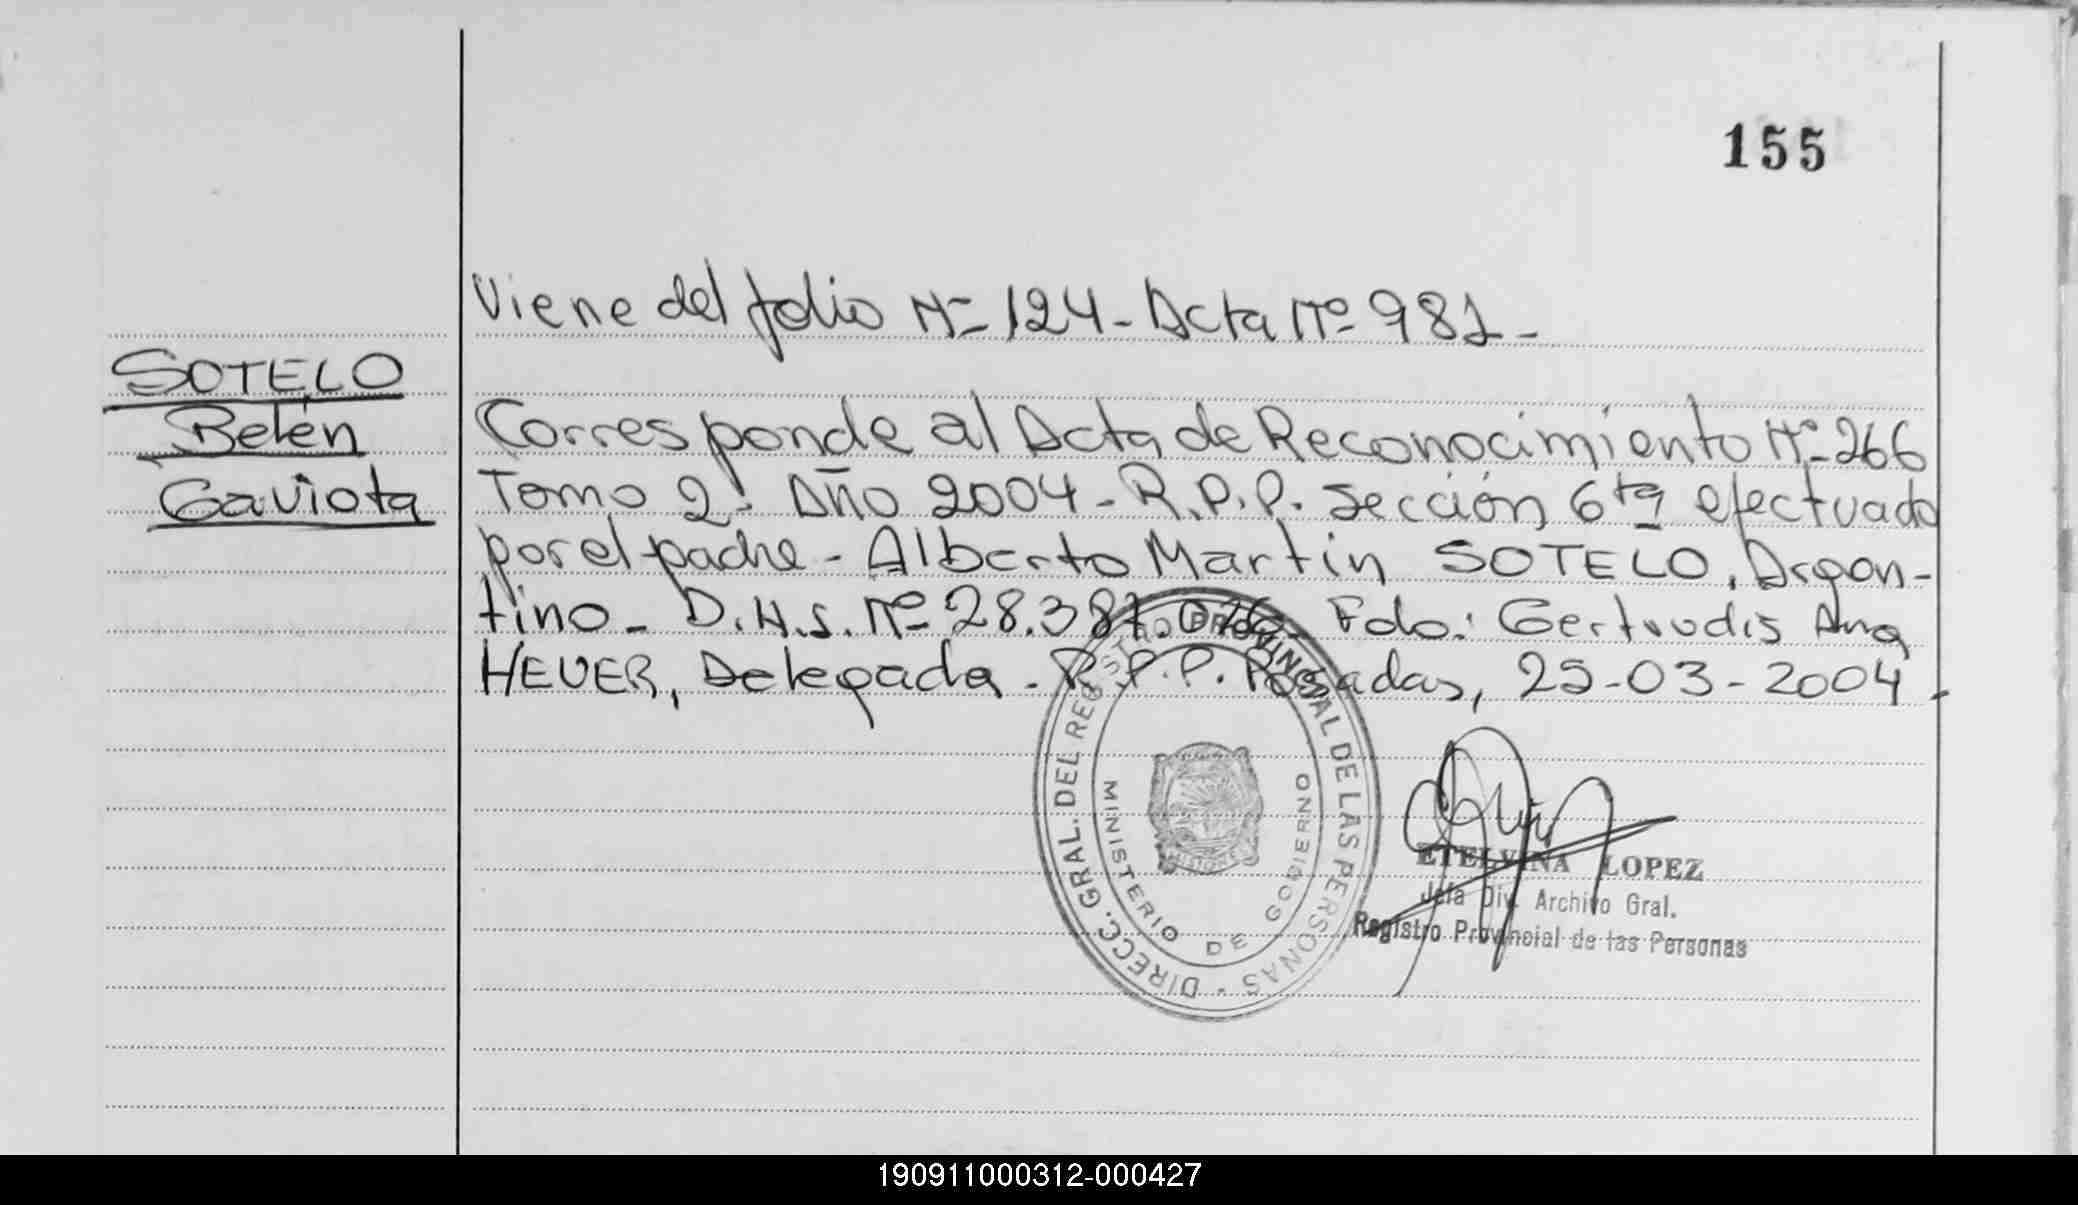 155
Viene del folio Nº 124 - Acta Nº 981 -
SOTELO
Belén
Gaviota
Corresponde al Acta de Reconocimiento Nº 266
Tomo 2º Año 2004 - R.P.P. Sección 6ta efectuado
por el padre - Alberto Martín SOTELO, Argen-
tino - D.N.I. Nº 28.387.026 - Fdo: Gertrudis Ana
HEUER, Delegada - R.P.P. Posadas, 25-03-2004.
DIRECC. GRAL. DEL REGISTRO PROVINCIAL DE LAS PERSONAS -
MINISTERIO DE GOBIERNO
MISIONES
ETELVINA LOPEZ
Jefa Div. Archivo Gral.
Registro Provincial de las Personas
190911000312-000427